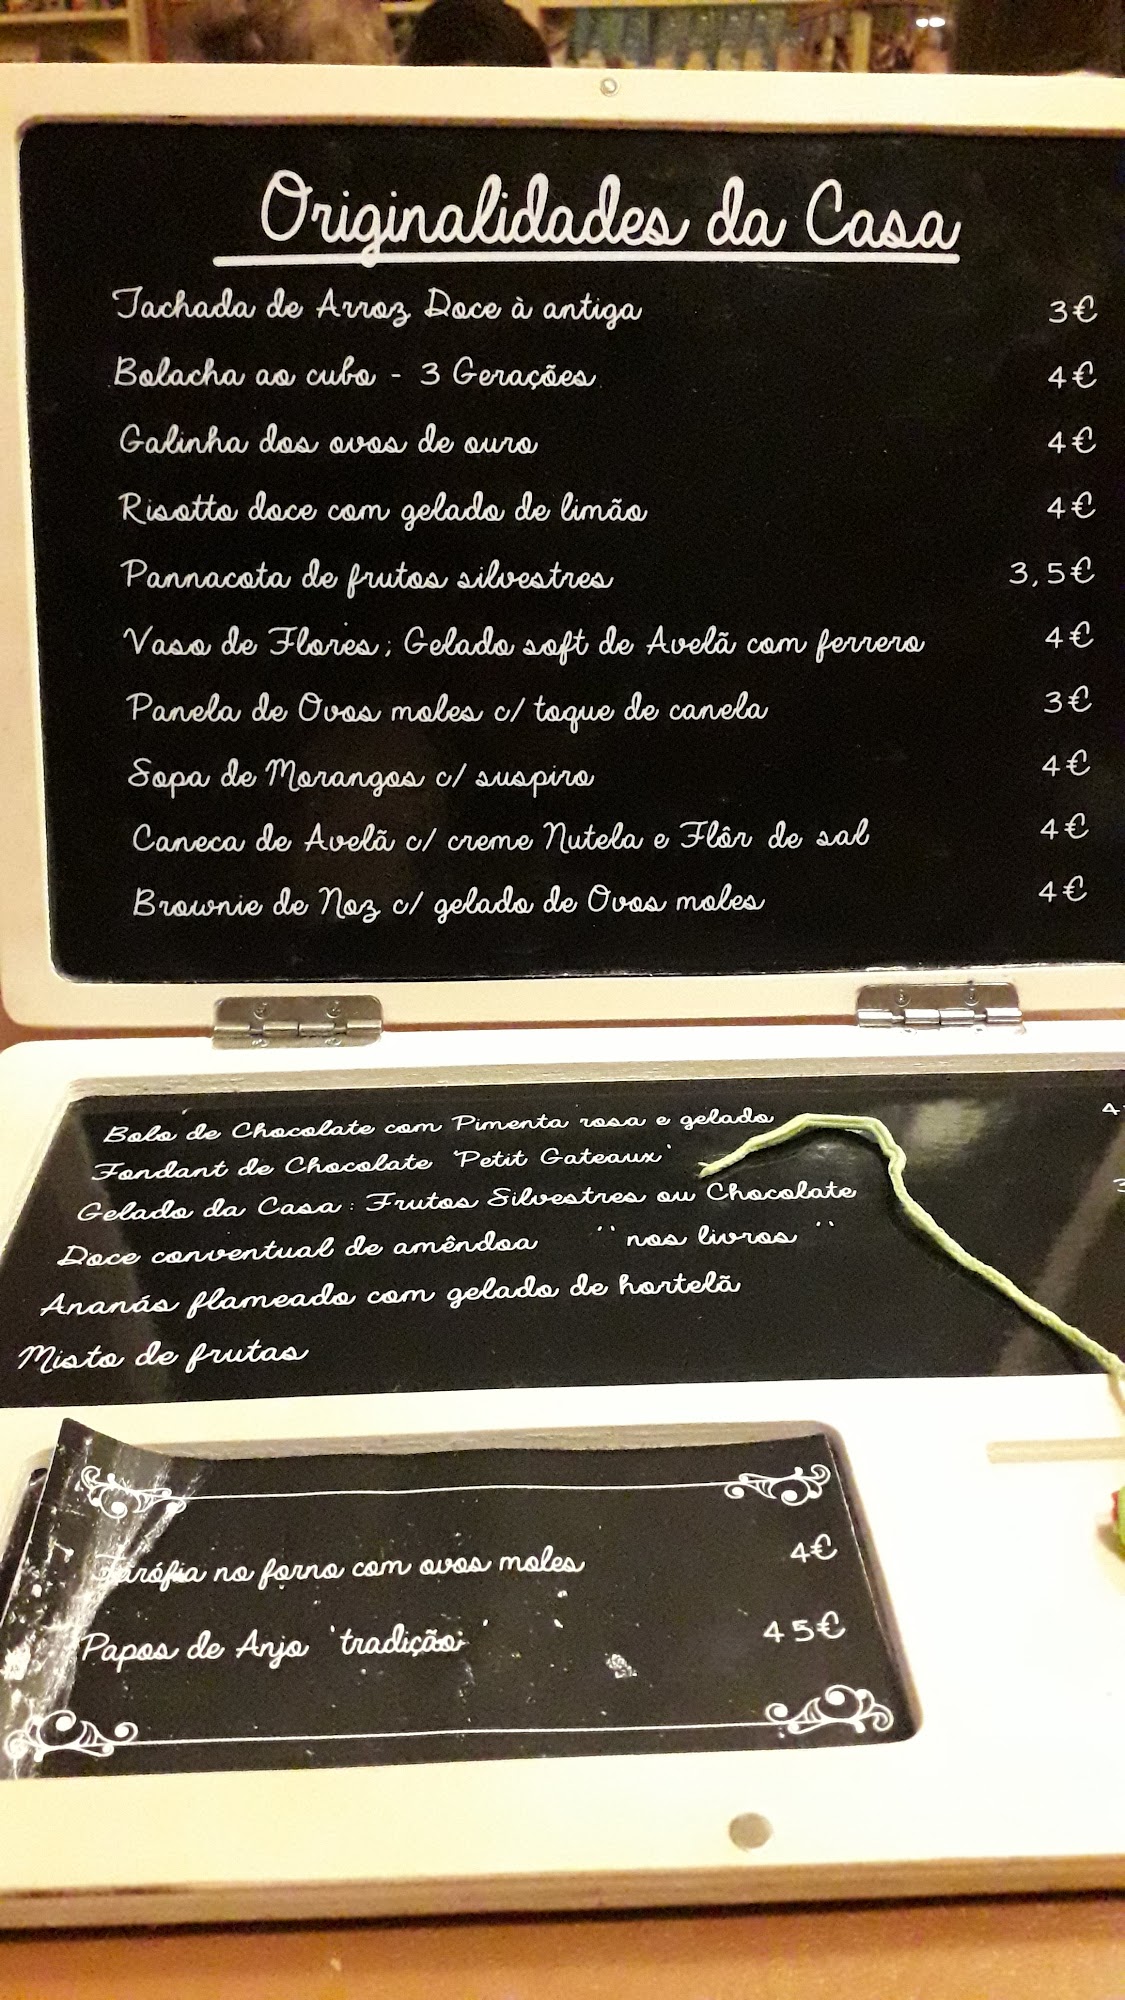 Originalidades da Casa
Tachada de Arroz Doce à antiga 3€
Bolacha ao cubo - 3 Gerações 4€
Galinha dos ovos de ouro 4€
Risotto doce com gelado de limão 4€
Pannacota de frutos silvestres 3,5€
Vaso de Flores; Gelado soft de Avelã com ferrero 4€
Panela de Ovos moles c/ toque de canela 3€
Sopa de Morangos c/ suspiro 4€
Caneca de Avelã c/ creme Nutela e Flôr de sal 4€
Brownie de Noz c/ gelado de Ovos moles 4€
Bolo de Chocolate com Pimenta rosa e gelado 4
Fondant de Chocolate 'Petit Gateaux'
Gelado da Casa: Frutos Silvestres ou Chocolate 3
Doce conventual de amêndoa '' nos livros ''
Ananás flameado com gelado de hortelã
Misto de frutas
Farófia no forno com ovos moles 4€
Papos de Anjo 'tradição' 45€